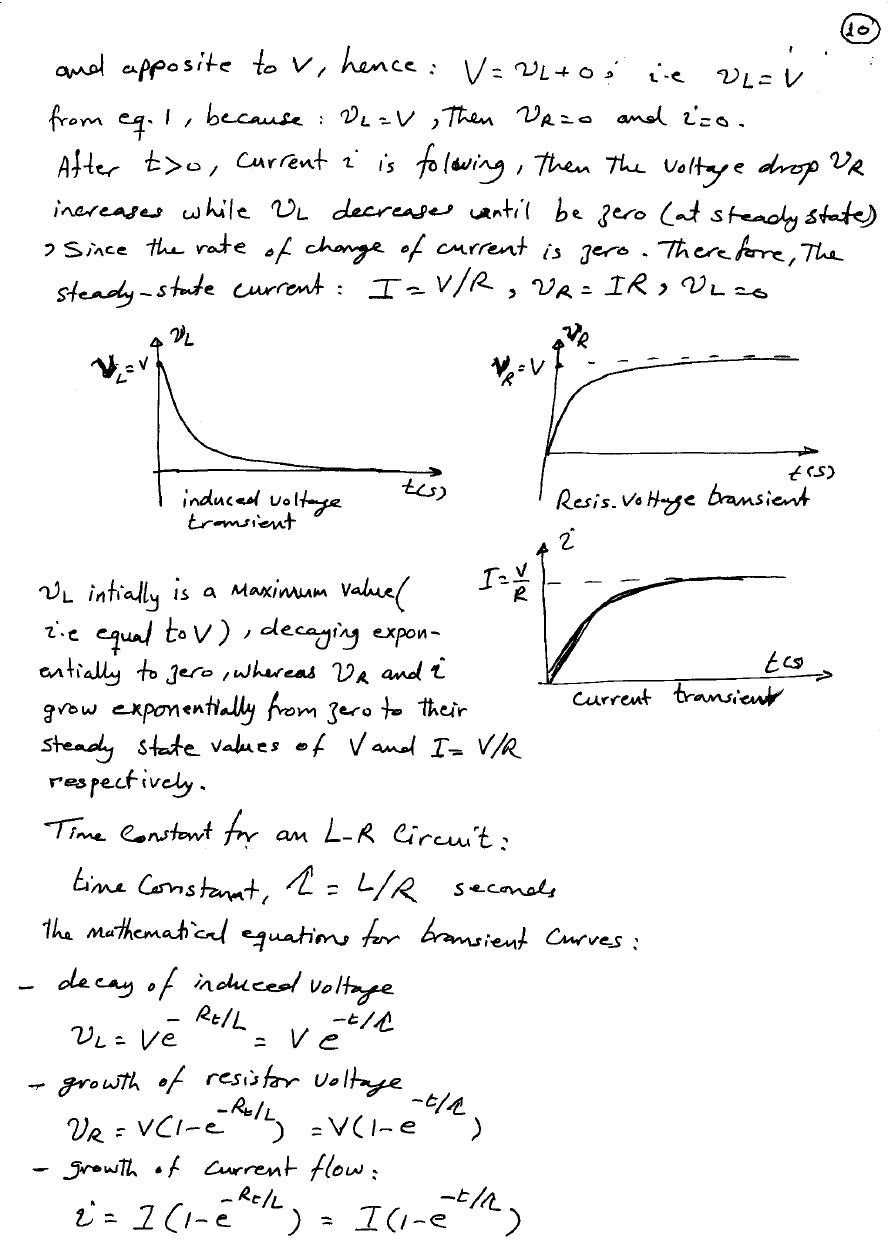 10
and apposite to V, hence : V = υL + 0 ; i.e υL = V
from eq. 1 , because : υL = V , Then υR = 0 and i = 0 .
After t>0, Current i is folowing , Then The Voltage drop υR
increases while υL decreases until be zero (at steady state)
, Since the rate of change of current is zero . Therefore, The
steady-state current : I = V/R , υR = IR , υL = 0
υL
υR
VL = V
VR = V
t(s)
t(s)
induced voltage
transient
Resis. Voltage transient
i
I = V/R
υL intially is a Maximum value(
i.e equal to V ) , decaying expon-
entially to zero , whereas υR and i
t(s)
Current transient
grow exponentially from zero to their
steady state values of V and I = V/R
respectively.
Time Constant for an L-R Circuit :
time Constant, τ = L/R seconds
The mathematical equations for transient Curves :
- decay of induced voltage
υL = Ve^-Rt/L = V e^-t/τ
- growth of resistor voltage
υR = V(1-e^-Rt/L) = V(1-e^-t/τ)
- growth of Current flow :
i = I(1-e^-Rt/L) = I(1-e^-t/τ)